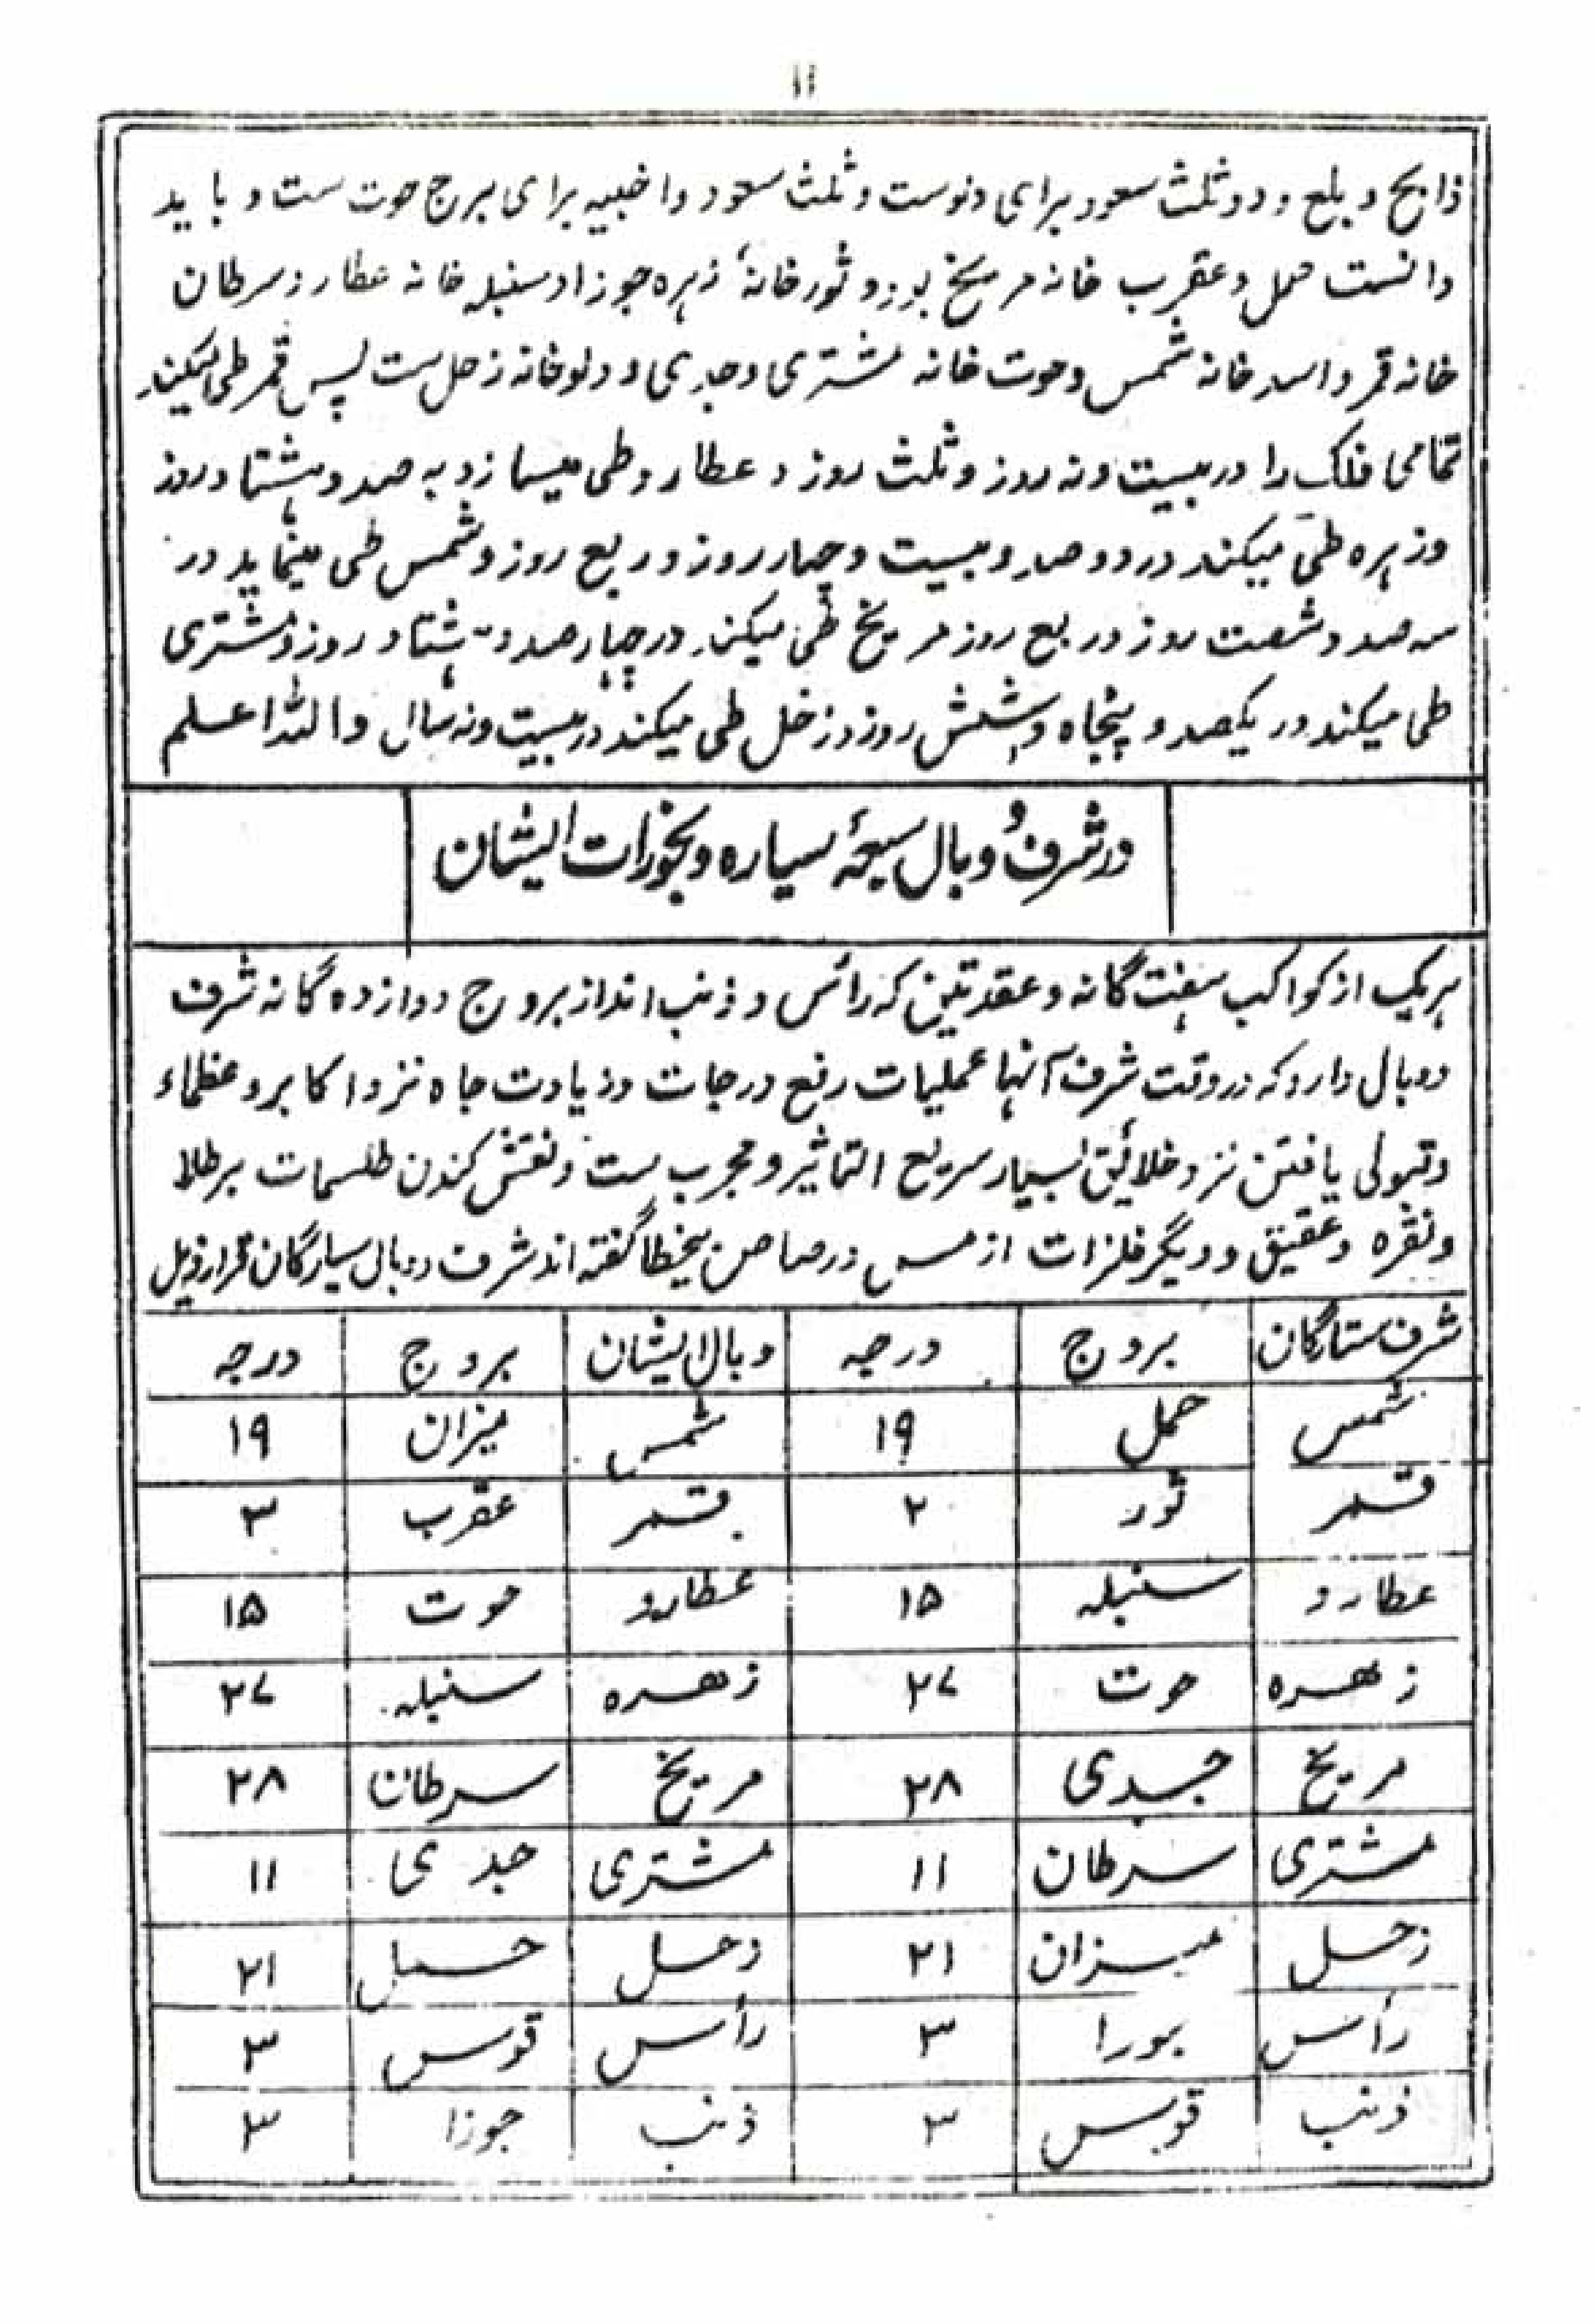 ۱۱
ذابح و بلع و دو ثلث سعود برای دلوست و ثلث سعود و اخبیه برای برج حوت ست و باید
دانست حمل و عقرب خانه مریخ بود و ثور خانهٔ زهره جوزا و سنبله خانه عطارد سرطان
خانه قمر و اسد خانه شمس و حوت خانه مشتری و جدی و دلو خانه زحل ست پس قمر طی میکند
تمامی فلک را در بیست و نه روز و ثلث روز و عطارد طی میسازد به صد و هشتاد روز
و زهره طی میکند در دو صد و بیست و چهار روز و ربع روز و شمس طی مینماید در
سه صد و شصت روز و ربع روز مریخ طی میکند در چهار صد و هشتاد روز و مشتری
طی میکند در یکصد و پنجاه و شش روز و زحل طی میکند در بیست و نه سال والله اعلم
در شرف و وبال سبعهٔ سیاره و بخورات ایشان
هر یک از کواکب هفت گانه و عقدتین که رأس و ذنب اند از بروج دوازده گانه شرف
و وبال دارد که در وقت شرف آنها عملیات رفع درجات و زیادت جاه نزد اکابر و عظماء
و قبولی یافتن نزد خلائق بسیار سریع التاثیر و مجرب ست و نقش کندن طلسمات بر طلا
و نقره و عقیق و دیگر فلزات از مس و رصاص بیخطا گفته اند شرف و وبال سیارگان قرار ذیل
شرف ستارگان بروج درجه وبال ایشان بروج درجه
شمس حمل ۱۹ شمس میزان ۱۹
قمر ثور ۲ قمر عقرب ۳
عطارد سنبله ۱۵ عطارد حوت ۱۵
زهره حوت ۲۷ زهره سنبله ۲۷
مریخ جدی ۲۸ مریخ سرطان ۲۸
مشتری سرطان ۱۱ مشتری جدی ۱۱
زحل میزان ۲۱ زحل حمل ۲۱
رأس جورا ۳ رأس قوس ۳
ذنب قوس ۳ ذنب جوزا ۳